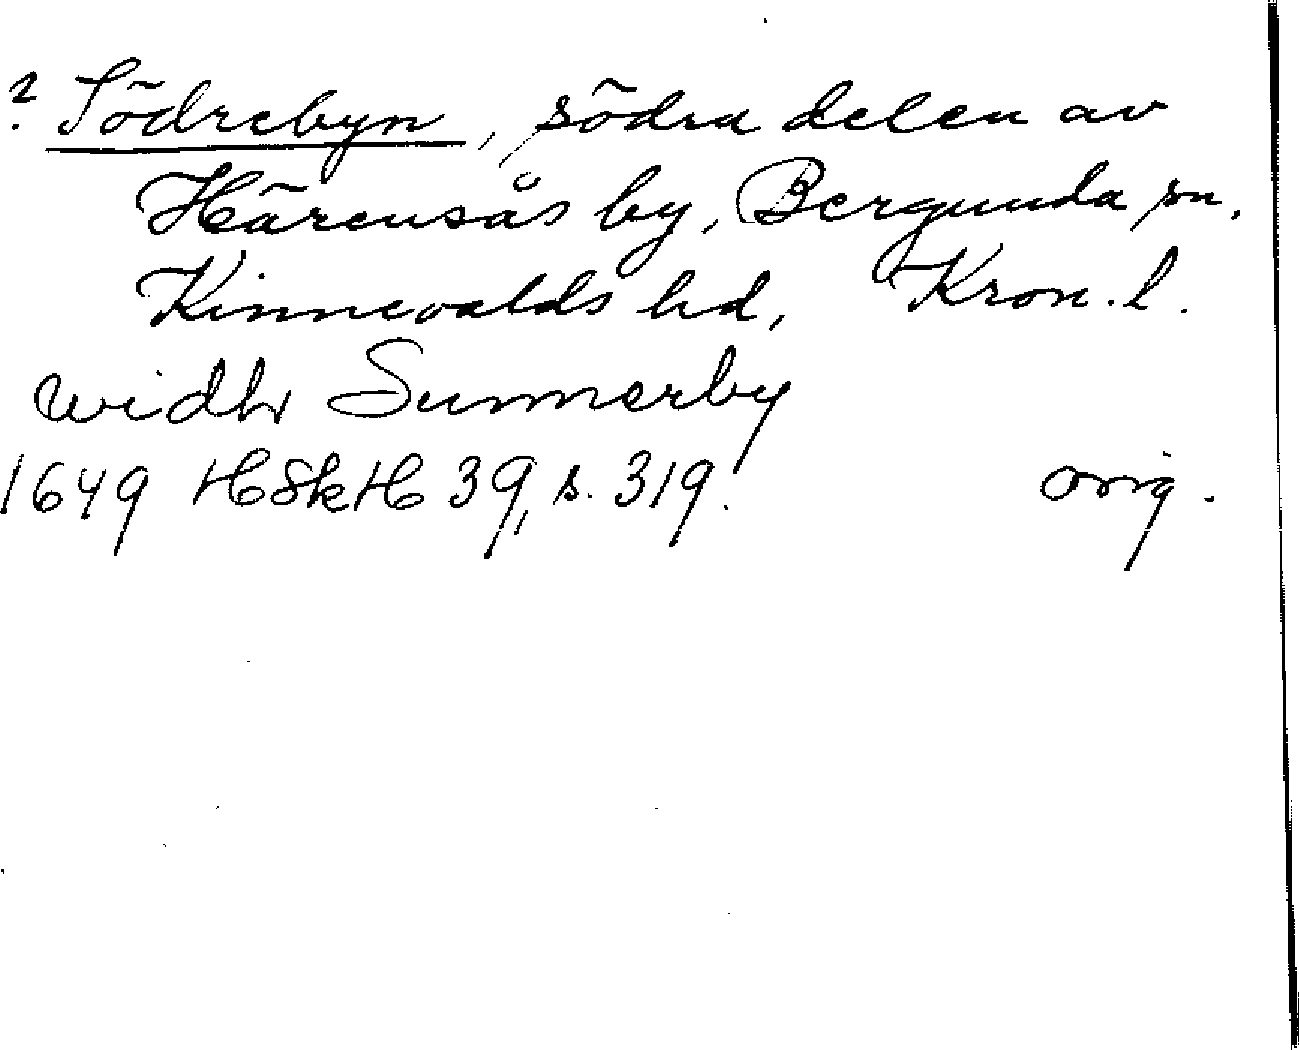 ? Södrebyn, södra delen av
Härensås by, Bergunda sn,
Kinnevalds hd, Kron. l.
widh Sunnerby
1649 HSkH 39, s. 319. orig.